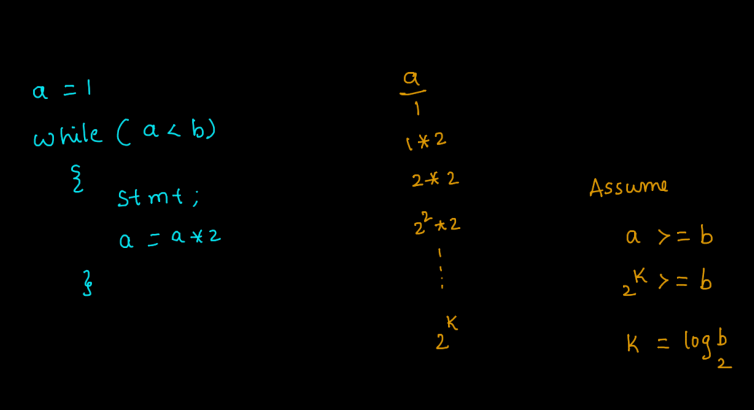 a = 1
while ( a < b)
{
stmt ;
a = a * 2
}
a
1
1 * 2
2 * 2
2² * 2
⋮
2ᴷ
Assume
a >= b
2ᴷ >= b
K = log₂b